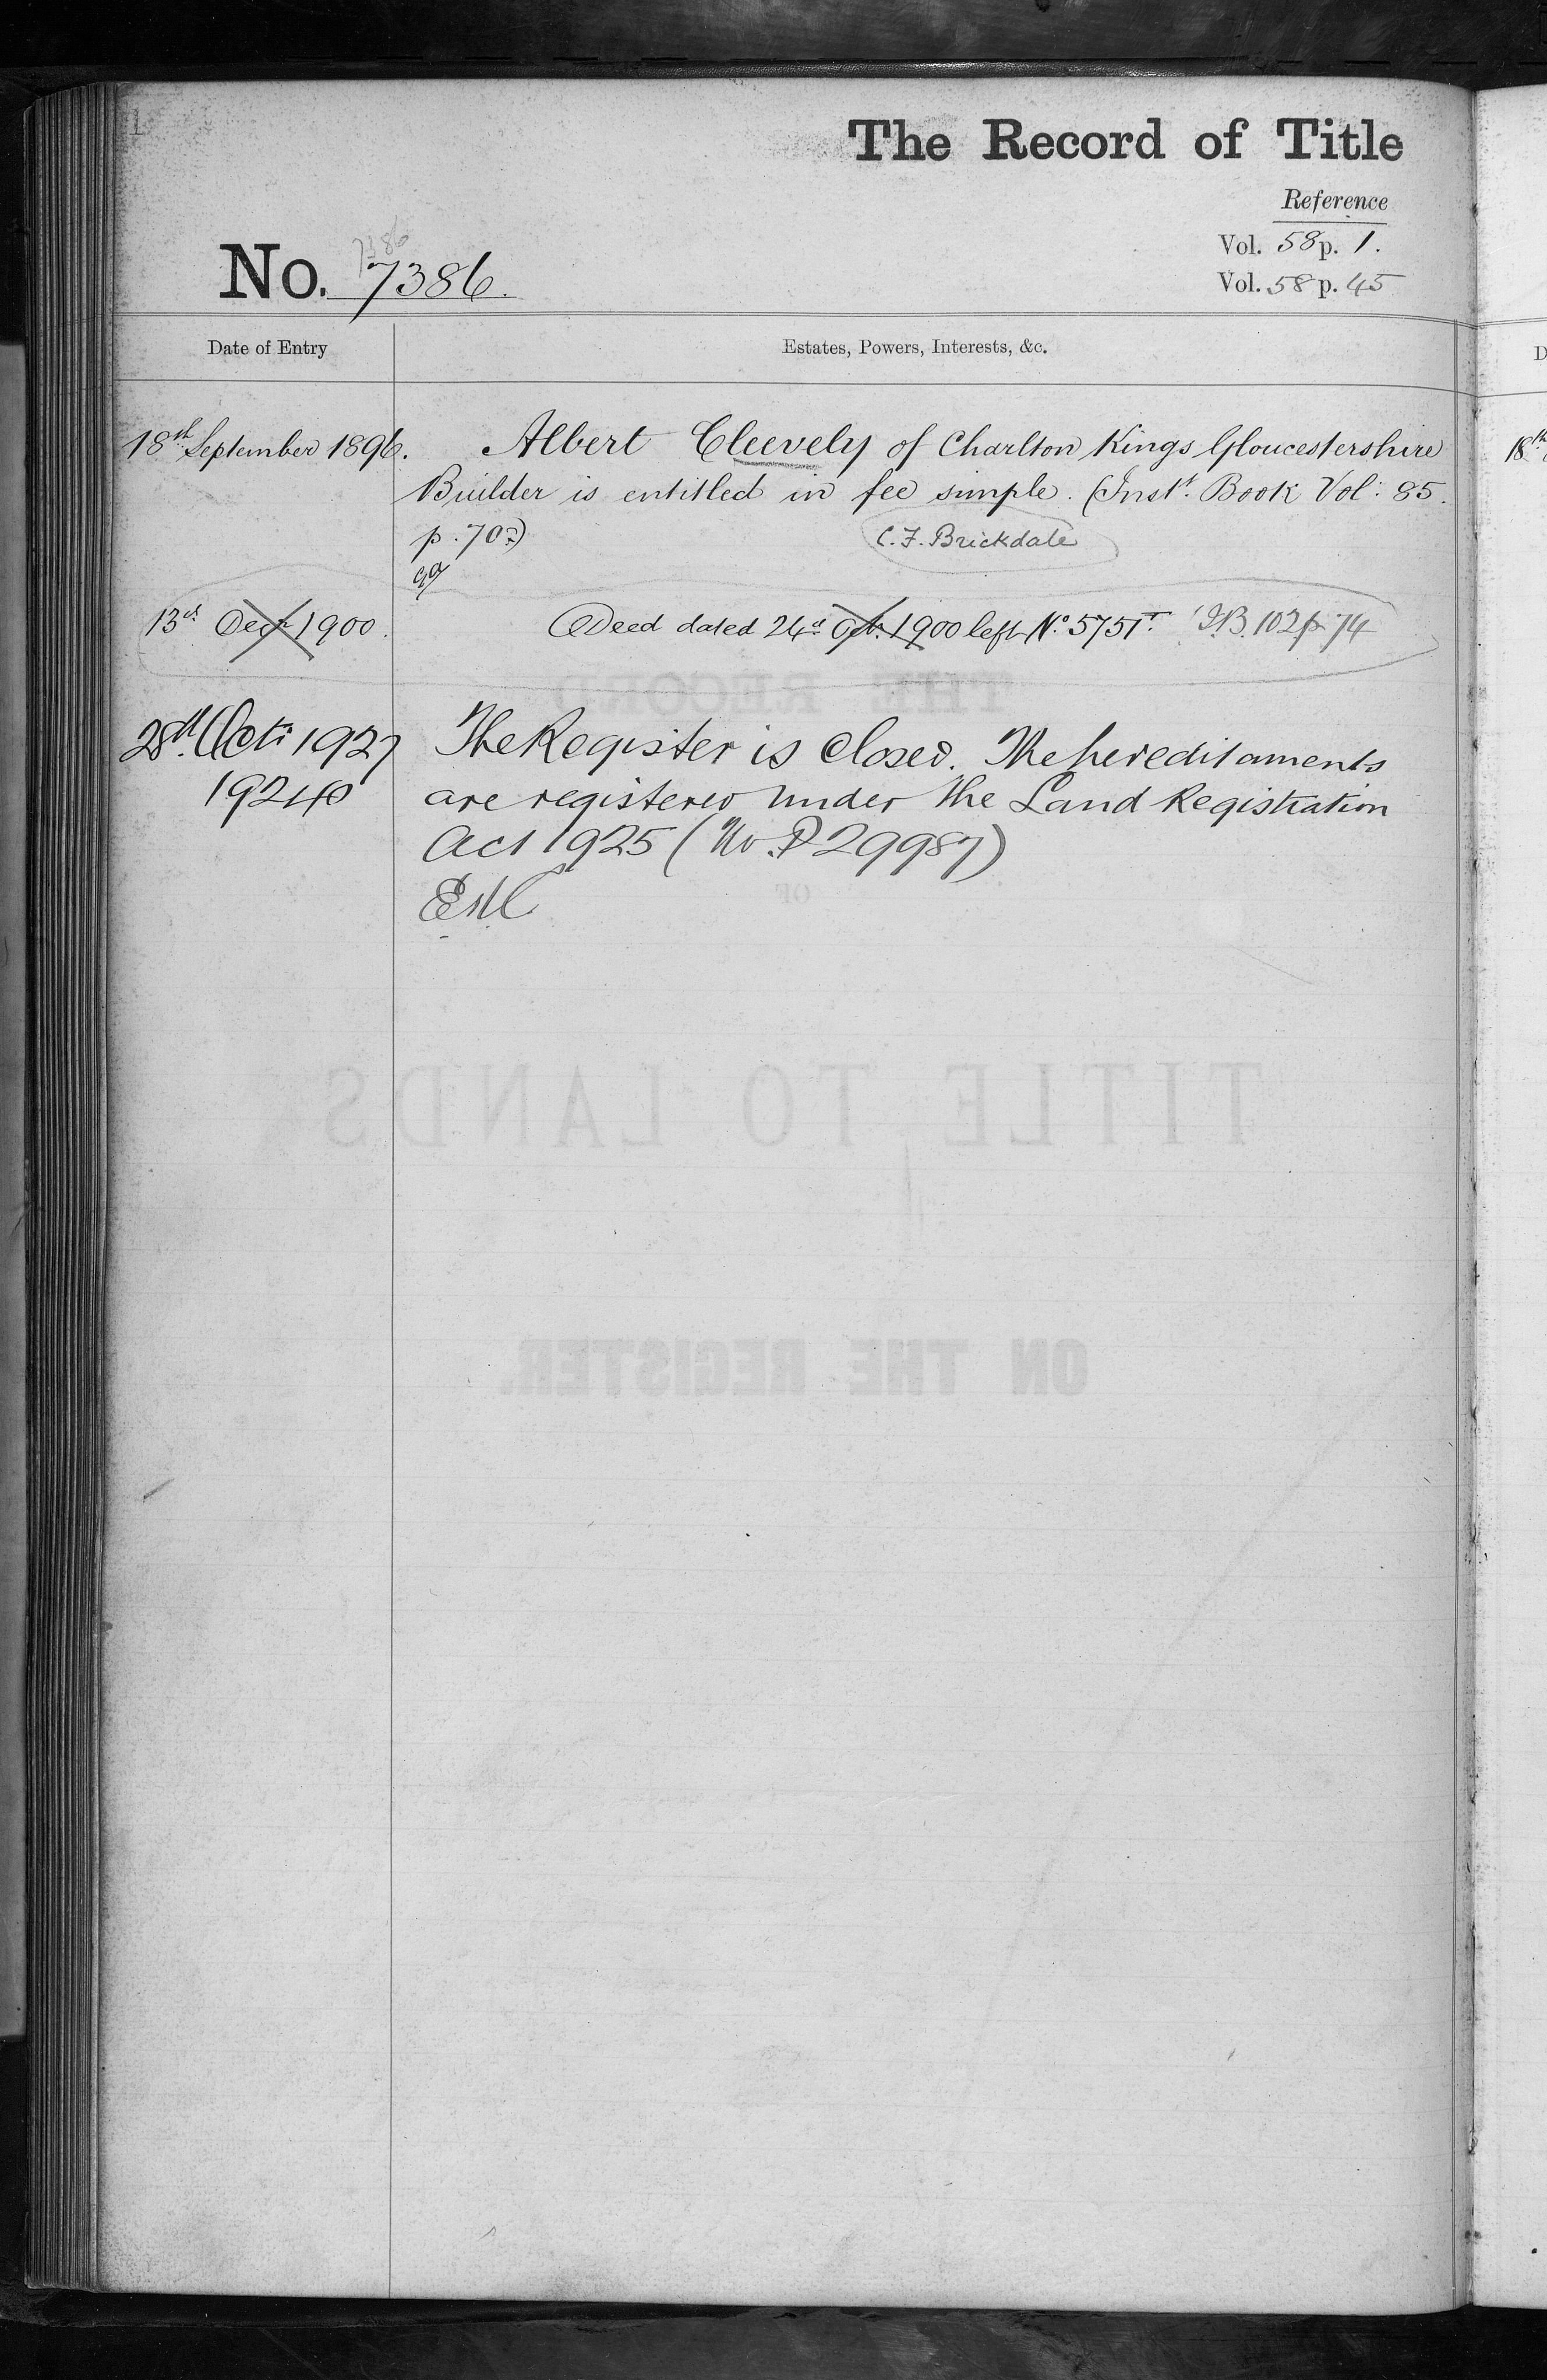 The Record of Title
Reference
Vol. 58 p. 1.
7386
No. 7386.
Vol. 58 p. 45
Date of Entry
Estates, Powers, Interests, &c.
18th September 1896. Albert Cleevely of Charlton Kings Gloucestershire
Builder is entitled in fee simple. (Inst. Book Vol: 85.
p. 70
C.F. Brickdale
13th Decr 1900. Deed dated 24th Oct. 1900 left No 5751 I.B. 102 p 74
THE RECORD
28th Oct: 1927 The Register is Closed. The hereditaments
are registered under the Land Registration
Act 1925 (No. P 29987)
OF
TITLE TO LANDS
ON THE REGISTER.
18th